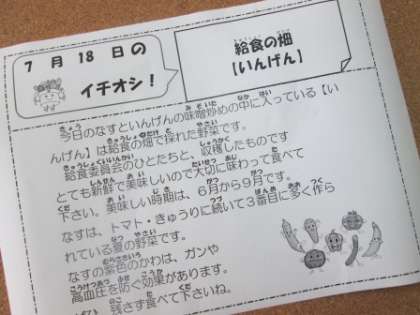 7月18日の
イチオシ！
給食の畑
【いんげん】
今日のなすといんげんの味噌炒めの中に入っている【い
んげん】は給食の畑で採れた野菜です。
給食委員会のひとたちと、収穫したものです
とても新鮮で美味しいので大切に味わって食べて
下さい。美味しい時期は、6月から9月です。
なすは、トマト・きゅうりに続いて3番目に多く作ら
れている夏の野菜です。
なすの紫色のかわは、ガンや
高血圧を防ぐ効果があります。
残さず食べて下さいね。